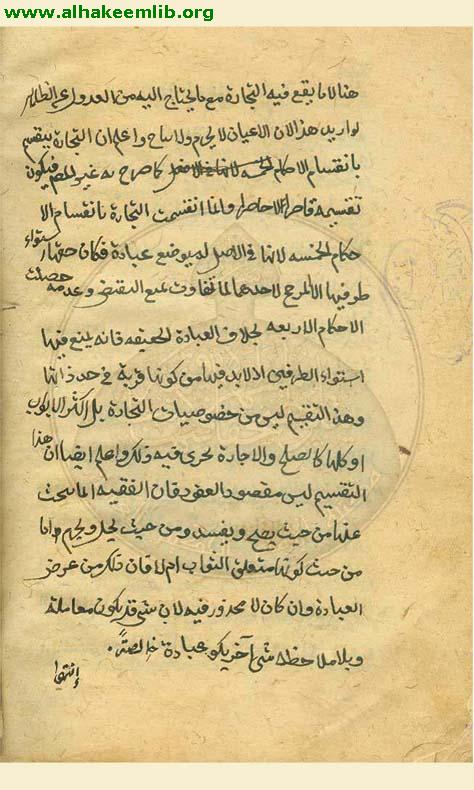 www.alhakeemlib.org
هنا لا ما يقع فيه التجارة مع ما يحتاج اليه من العدول عن الظاهر
لو اريد هذا لان الاعيان لا يحرم ولا يباح واعلم ان التجارة ينقسم
بانقسام الاحكام الخمسه كما صرح به غير المصر فيكون
تقسيمه قاصرا لا حاصرا وانما انقسمت التجارة بانقسام الا
حكام الخمسه لانها في الاصل لم يوضع عبادة فكان حقها استواء
طرفيها الا لمرجح لاحدهما لما تفاوت بمنع النقيض وعدمه حصلت
الاحكام الاربعه بخلاف العبادة الحقيقه فانه يمنع فيها
استواء الطرفين اذ لابد فيها من كونها قربة في حد ذاتها
وهذا التقسيم ليس من خصوصيات التجارة بل اكثر الابواب
او كلها كالصلح والاجارة يجرى فيه ذلك واعلم ايضا ان هذا
التقسيم ليس مقصود بالعقود فان الفقيه انما يبحث
عنها من حيث يصح ويفسد ومن حيث يحل ويحرم واما
من حيث كونها متعلق الثواب ام لا فان ذلك من عرض
العبادة وان كان لا محذور فيه لان شئ قد يكون معاملة
وبلا ملاحظه شئ آخر يكو عبادة
إنتهى